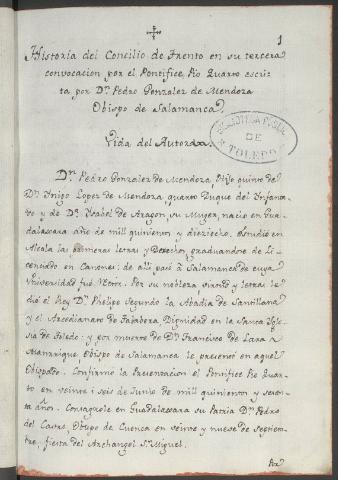 1
Historia del Concilio de Trento en su tercera
convocacion por el Pontifice Pio Quarto escri-
ta por Dn. Pedro Gonzalez de Mendoza
Obispo de Salamanca
Vida del Autor
BIBLIOTECA
DE
TOLEDO
Dn. Pedro Gonzalez de Mendoza, hijo quinto de
Dn. Yñigo Lopez de Mendoza, quarto Duque del Ynfanta-
vo y de Da. Ysabel de Aragon, su Muger, nacio en Gua-
dalaxara año de mil quinientos y dieziocho. Estudió en
Alcala las primeras letras y Derechos, graduandose de Li-
cenciado en Canones: de alli pasó à Salamanca de cuya
Vniversidad fué Retor. Por su nobleza, virtud y letras le
dió el Rey Dn. Phelipe Segundo la Abadia de Santillana
y el Arcedianato de Talabera Dignidad en la Santa Ygle-
sia de Toledo: y por muerte de Dn. Francisco de Lara
Manrrique, Obispo de Salamanca le presentó en aquel
Obispado. Confirmó la Presentacion el Pontifice Pio Quar-
to en veinte i seis de Junio de mil quinientos y sesen-
ta años. Consagrole en Guadalaxara su Patria Dn. Pedro
del Castro, Obispo de Cuenca en veinte y nueve de Septiem-
tre, fiesta del Archangel Sn. Miguel.
Por